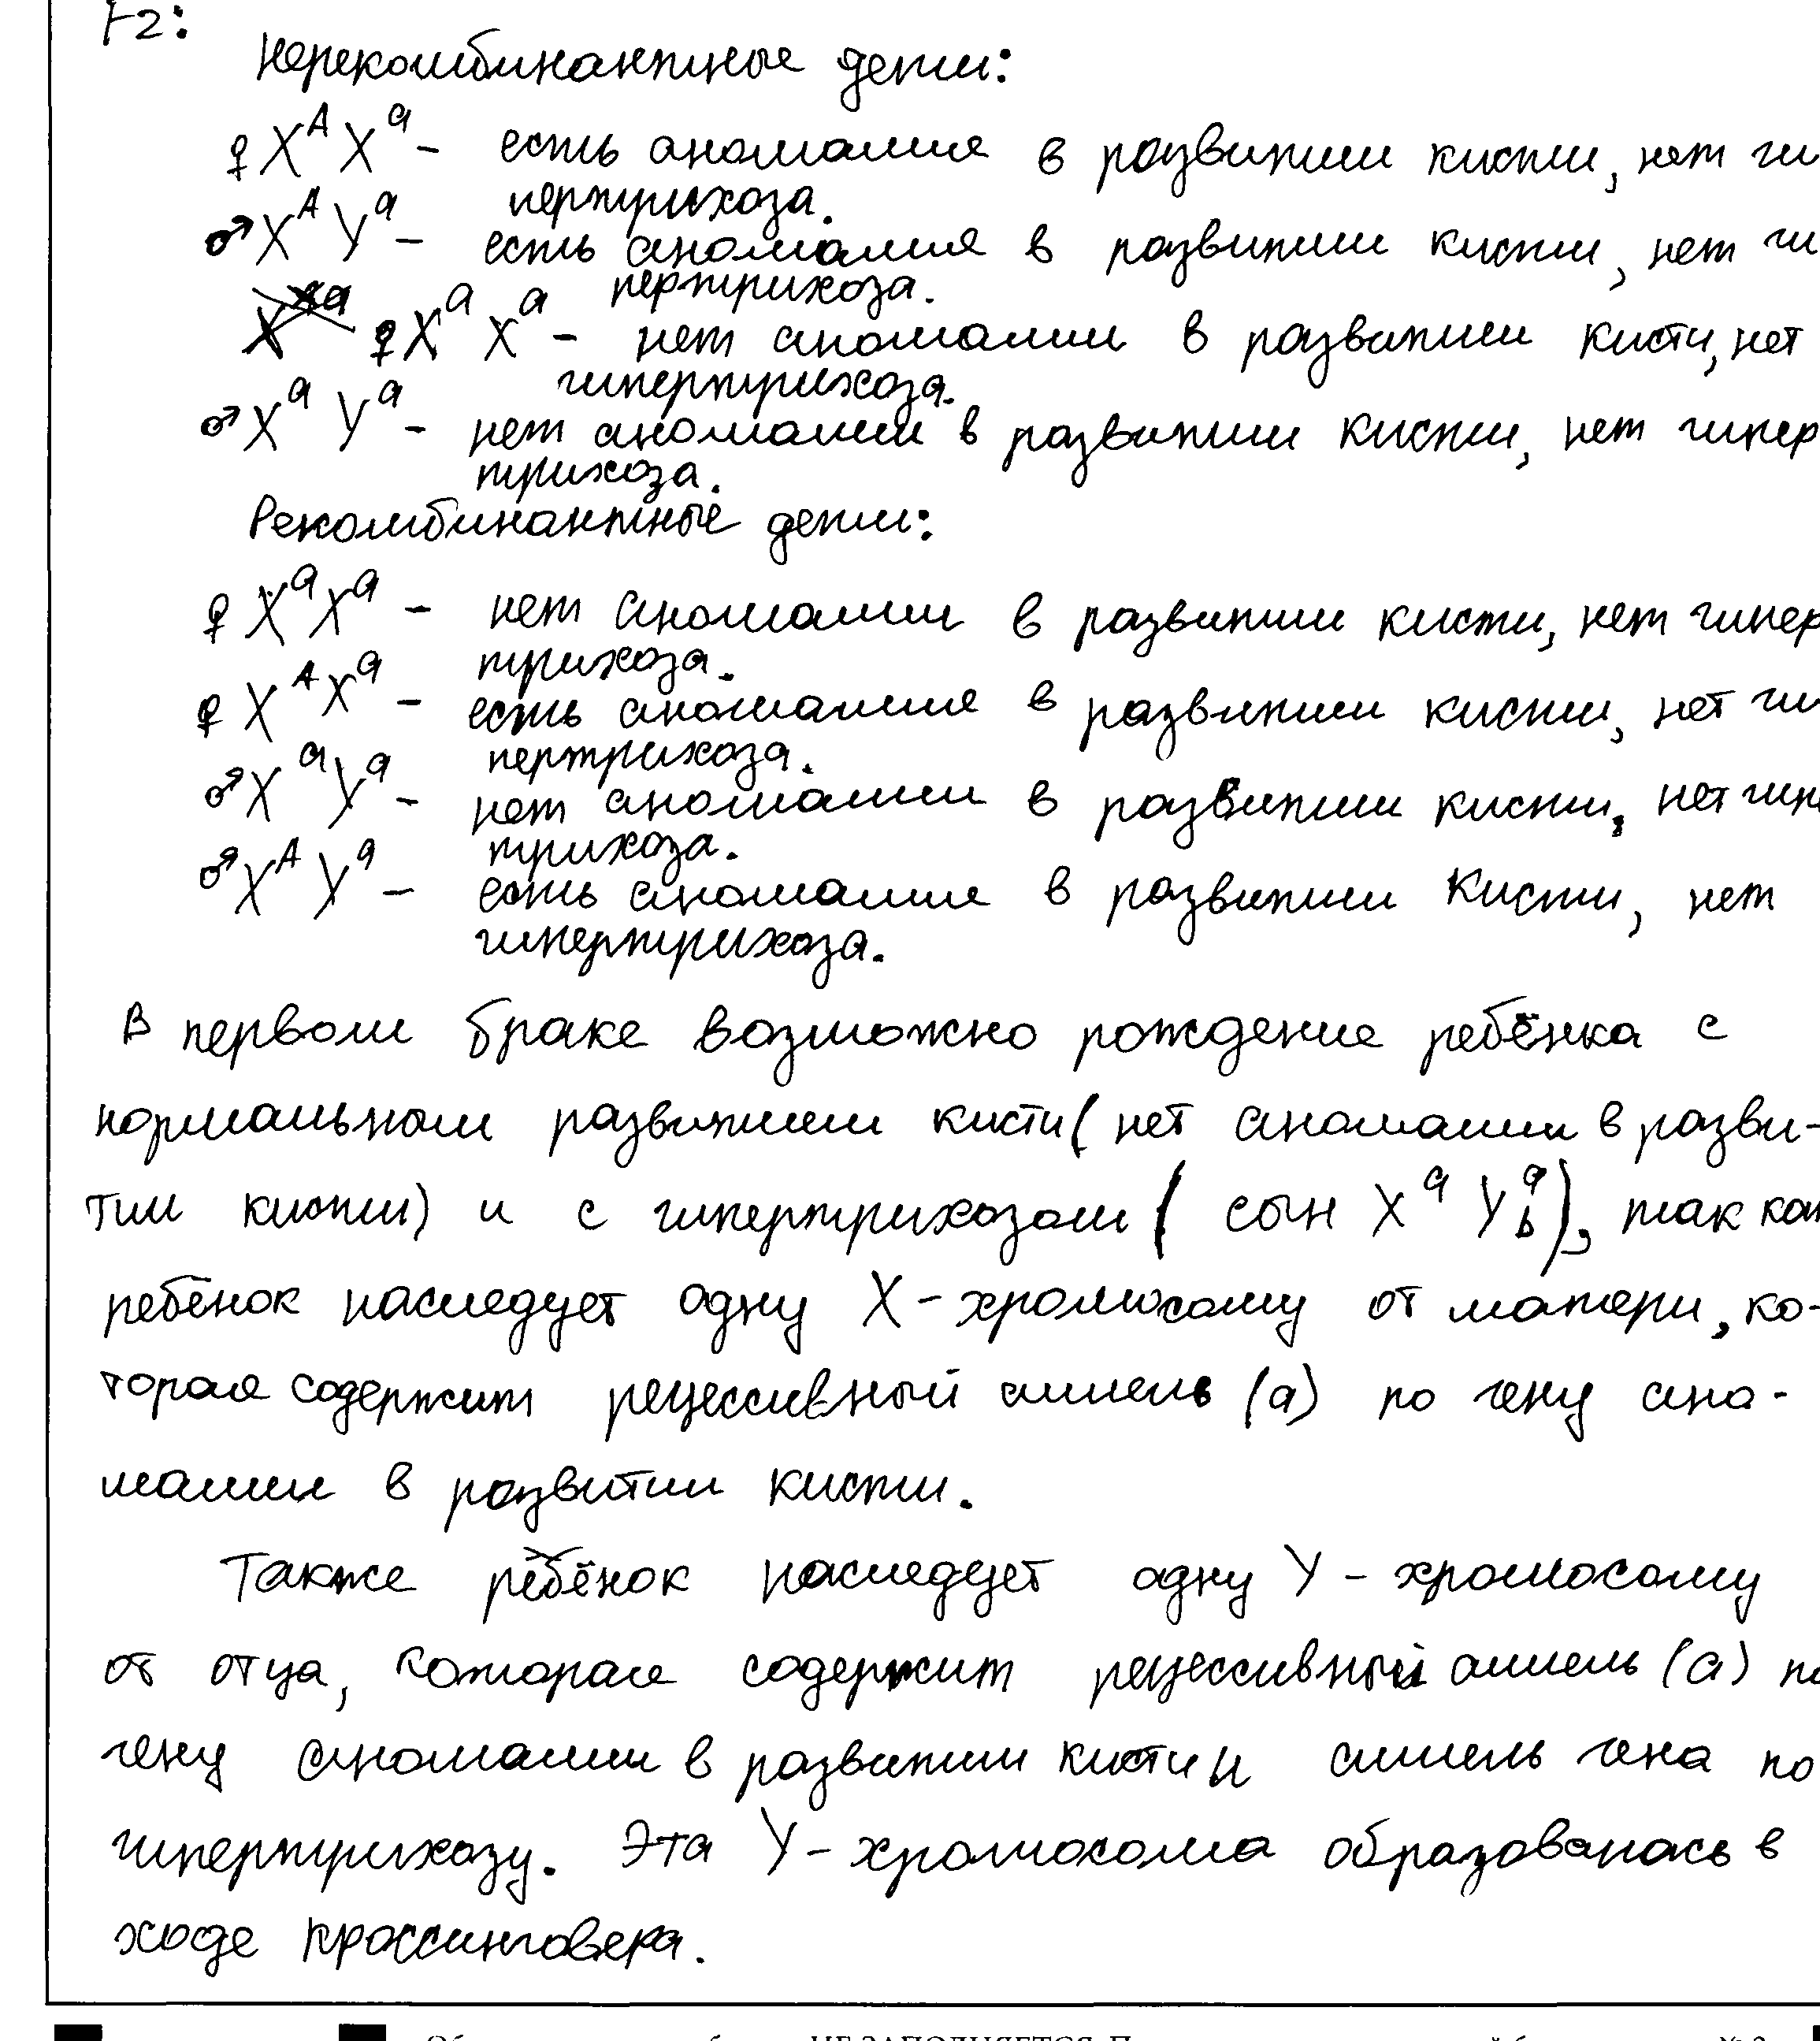 F2:
Нерекомбинантные дети:
♀ X^A X^a – есть аномалия в развитии кисти, нет ги
пертрихоза.
♂ X^A Y^a – есть аномалия в развитии кисти, нет ги
пертрихоза.
♀ X^a X^a – нет аномалии в развитии кисти, нет
гипертрихоза.
♂ X^a Y^a – нет аномалии в развитии кисти, нет гипер
трихоза.
Рекомбинантные дети:
♀ X^a X^a – нет аномалии в развитии кисти, нет гипер
трихоза.
♀ X^A X^a – есть аномалия в развитии кисти, нет ги
пертрихоза.
♂ X^a Y^a – нет аномалии в развитии кисти, нет гип
трихоза.
♂ X^A Y^a – есть аномалия в развитии кисти, нет
гипертрихоза.
В первом браке возможно рождение ребёнка с
нормальным развитием кисти (нет аномалии в разви-
тии кисти) и с гипертрихозом (сын X^a Y^a_b), так как
ребёнок наследует одну X-хромосому от матери, ко-
торая содержит рецессивный аллель (a) по гену ано-
малии в развитии кисти.
Также ребёнок наследует одну Y-хромосому
от отца, которая содержит рецессивный аллель (a) по
гену аномалии в развитии кисти и аллель гена по
гипертрихозу. Эта Y-хромосома образовалась в
ходе кроссинговера.